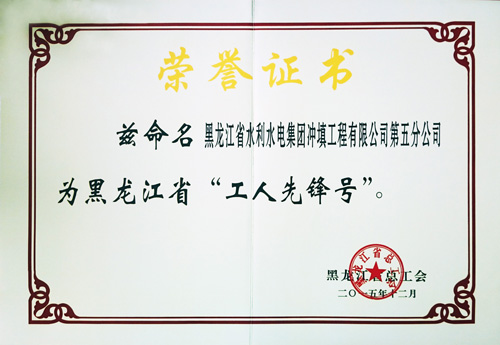 荣誉证书
兹命名 黑龙江省水利水电集团冲填工程有限公司第五分公司
为黑龙江省“工人先锋号”。
黑龙江省总工会
黑龙江省总工会
二〇一五年十二月